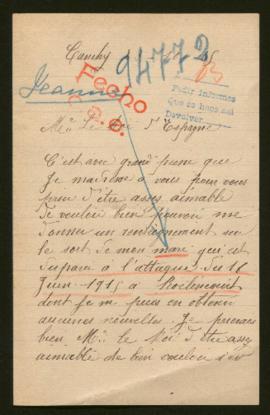 94772
Jeanne
Fecho
Pedir informes
Devolver
Mr Le Roi d'Espagne
C'est avec grand peine que
je m'adresse à vous pour vous
prier d'être asses aimable
de vouloir bien pouvoir me
donner un renseignement sur
le sort de mon mari qui est
disparu à l'attaque du 16
Juin 1915 à
dont je puis en obtenir
aucunes nouvelles. Je
bien, Mr. le Roi d'être asses
aimable de bien vouloir